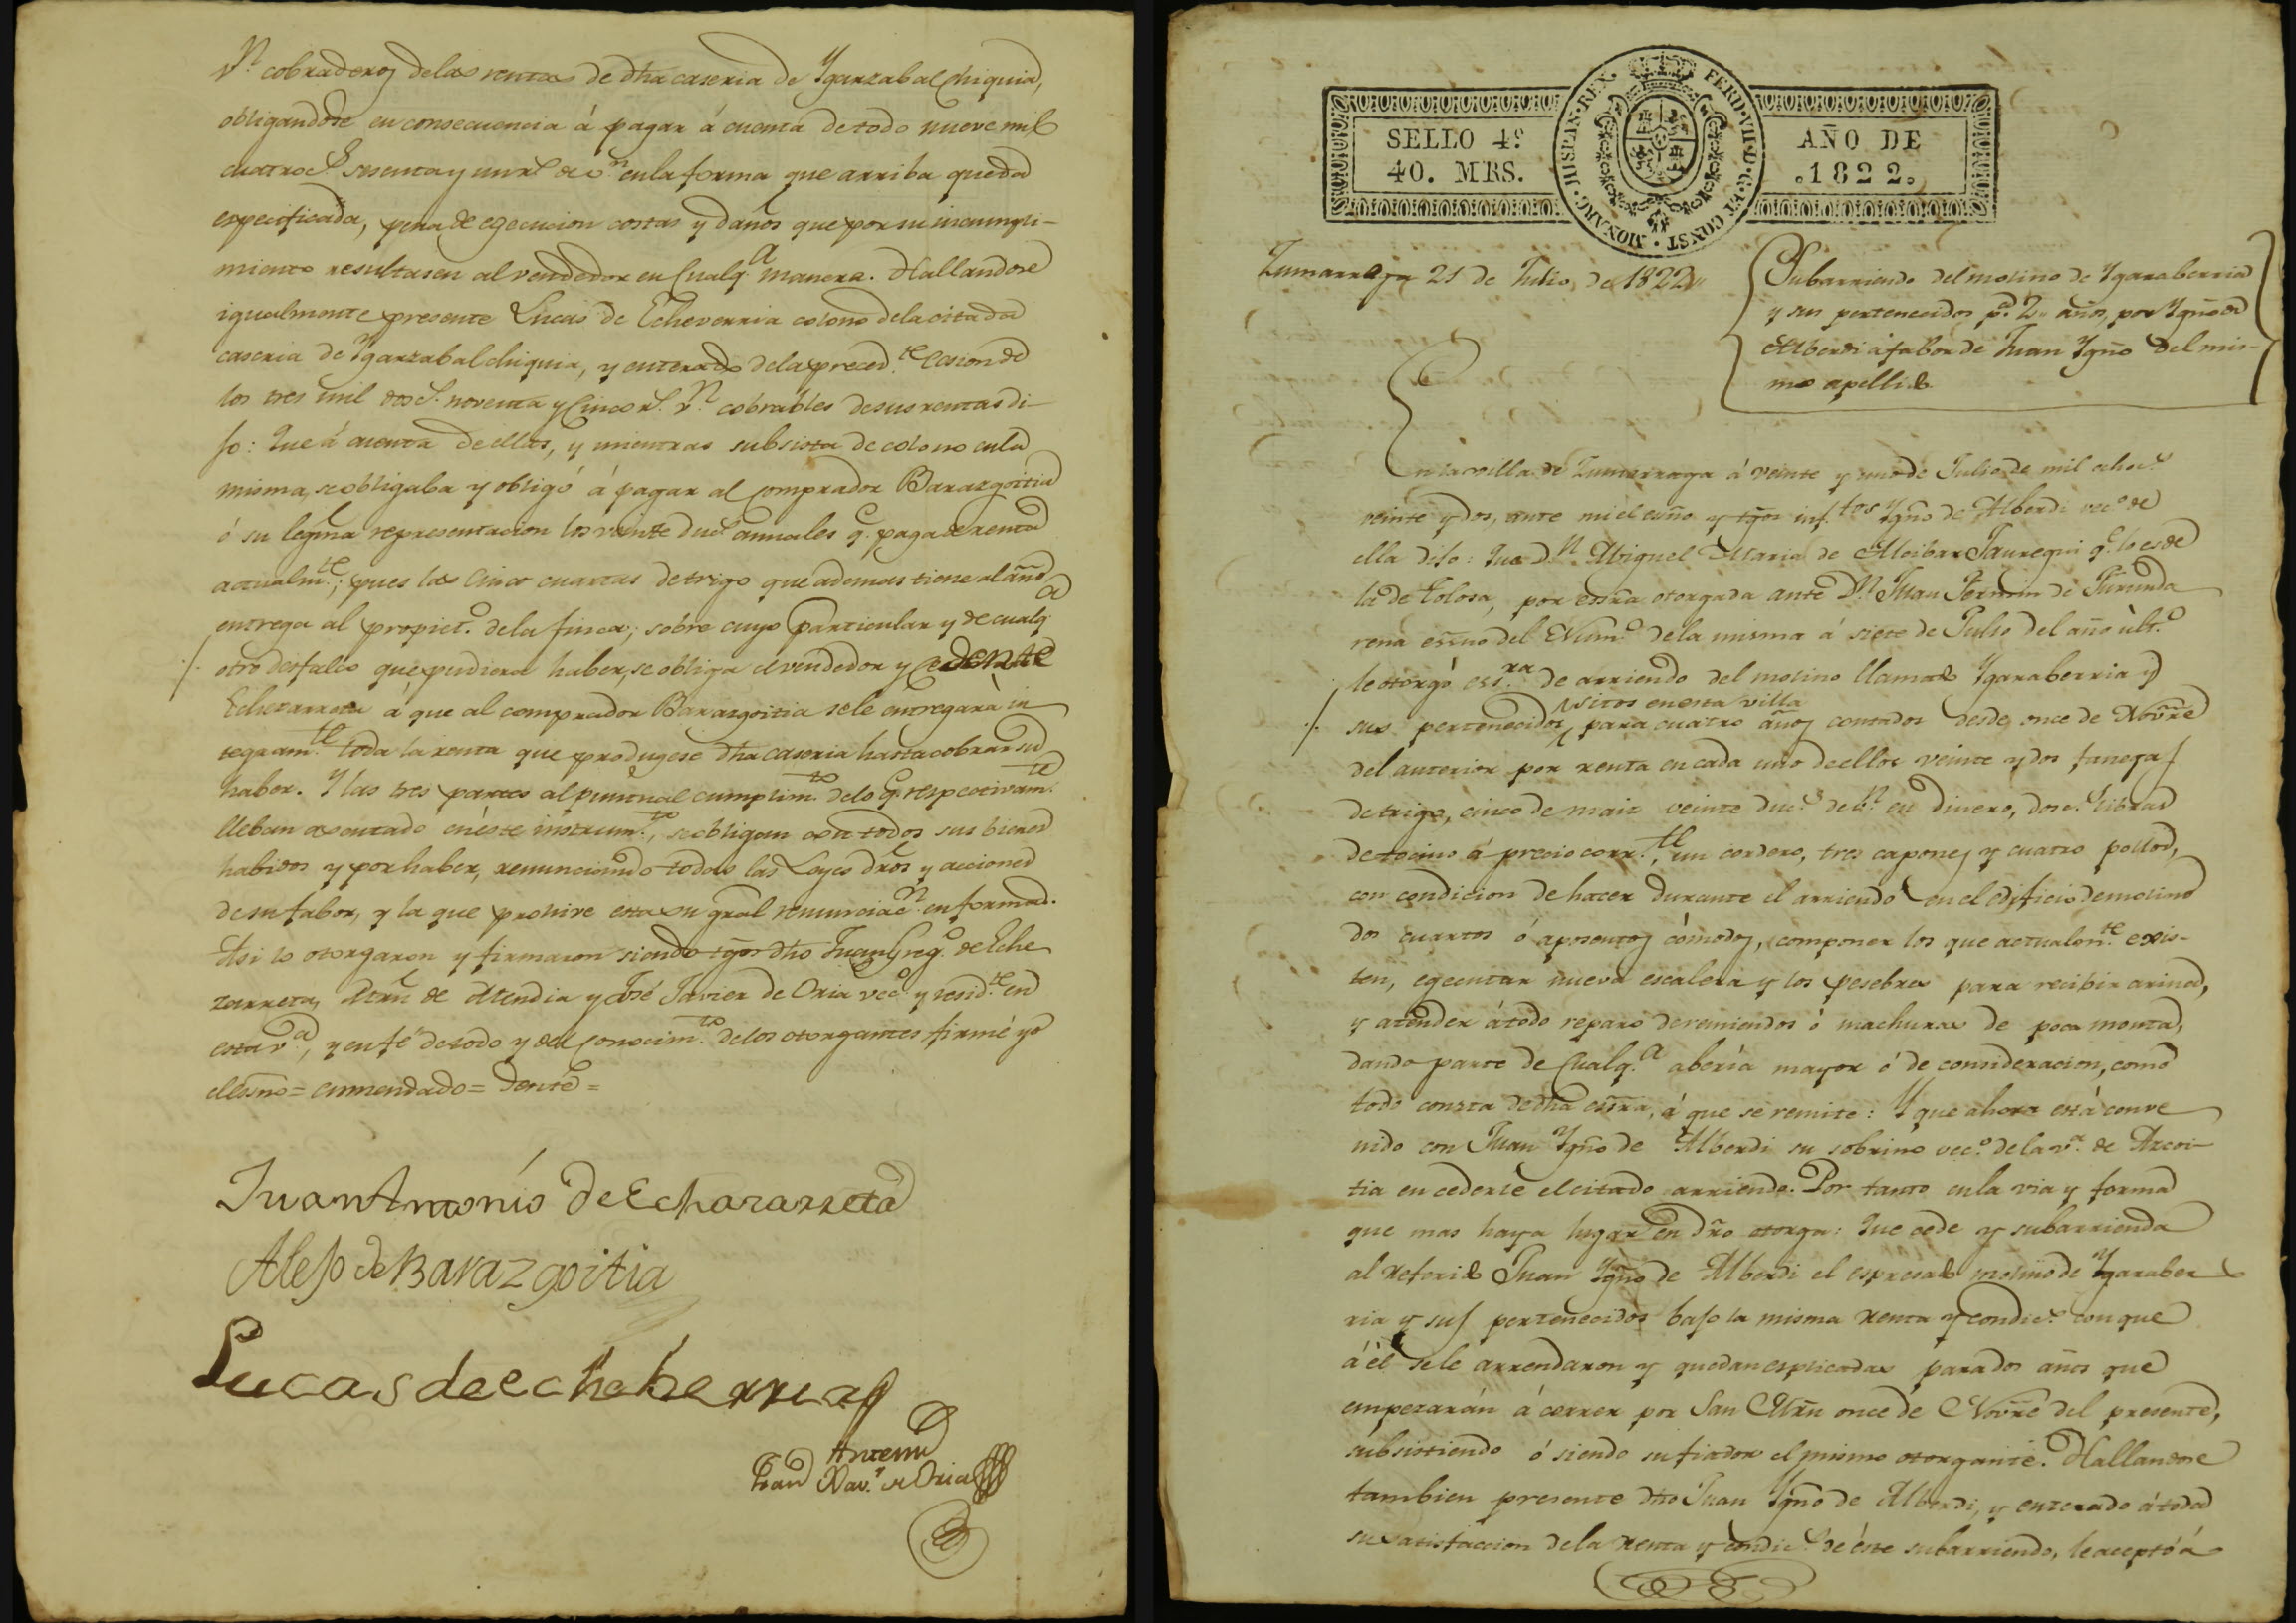 Vn. cobraderos delas rentas de dha caseria de Ygarzabal chiquia,
obligandose en consecuencia á pagar á cuenta de todo nueve mil
cuatroc.s sesenta y un r.s de v.n en la forma que arriba queda
especificada, pena de egecucion costas y daños que por su incumpli-
miento resultasen al vendedor en cualq.a manera. Hallandose
igualmente presente Lucas de Echeverria colono dela citada
caseria de Ygarzabal chiquia, y enterado dela preced.te cesion de
los tres mil dosc.s noventa y cinco r.s v.n cobrables de sus rentas di-
jo: Que á cuenta de ellas, y mientras subsista de colono en la
misma, se obligaba y obligó á pagar al comprador Barazgoitia
ó su legma representacion los veinte duc.s annuales q.e paga de renta
actualm.te; pues las cinco cuartas de trigo que ademas tiene al año
entrega al propiet.o dela finca; sobre cuyo particular y de cualq.a
otro desfalco que pudiera haber, se obliga el vendedor y cedente
Echezarreta á que al comprador Barazgoitia sele entregará in
tegram.te toda la renta que produgese dha caseria hasta cobrar su
haber. Y las tres partes al puntual cumplim.to delo q.e respectivam.te
lleban asentado en éste instrum.to, se obligan con todos sus bienes
habidos y por haber, renunciando todas las Leyes dros y acciones
de su fabor, y la que prohive esta su gral renunciac.n en forma.
Asi lo otorgaron y firmaron siendo tgos dho Juan Greg.o de Eche
zarreta, Mrn de Atendia y José Javier de Oria vec.s y resid.te en
esta v.a, y en fé de todo y del conocim.to delos otorgantes firmé yo
el Esno = enmendado = dente =
Juan Antonio de Echazarreta
Alejo de Barazgoitia
Lucas de echeberria
Antemi
Fran Xav.r de Oria
SELLO 4º
40. MRS.
HISPAN·REX· FERD·VII·D·G·ET CONST·MONARC·
AÑO DE
1822.
Zumarraga 21 de Julio de 1822
Subarriendo del molino de Ygaraberria
y sus pertenecidos p.r 2 años, por Ygno de
Alberdi á fabor de Juan Ygno del mis-
mo apellido
En la villa de Zumarraga á veinte y uno de Julio de mil ochoc.s
veinte y dos, ante mi el esño y tgos inf.tos Ygno de Alberdi vec.o de
ella dijo: Que D.n Miguel Maria de Alcibar Jauregui q.e lo es de
la de Tolosa, por essra otorgada ante D.n Juan Fermin de Furunda
rena esno del Num.o dela misma á siete de Julio del año últ.o
le otorgó ess.ra de arriendo del molino llamado Ygaraberria y
sitos en esta villa
sus pertenecidos, para cuatro años contados desde once de Novre
del anterior por renta en cada uno de ellos veinte y dos fanegas
de trigo, cinco de maiz veinte duc.s de v.n en dinero, dosc.s libras
de tocino á precio corr.te, un cordero, tres capones y cuatro pollos,
con condicion de hacer durante el arriendo en el edificio de molino
dos cuartos ó aposentos cómodos, componer los que actualm.te exis-
ten, egecutar nueva escalera y los pesebres para recibir arinas,
y atender á todo reparo de remiendos ó machuras de poca monta,
dando parte de cualq.a abería mayor ó de consideracion, como
todo consta de dha essra, á que se remite: Y que ahora está conve
nido con Juan Ygno de Alberdi su sobrino vec.o dela v.a de Azcoi-
tia en cederle el citado arriendo. Por tanto en la via y forma
que mas haya lugar en dro otorga: Que cede y subarrienda
al referido Juan Ygno de Alberdi el espresado molino de Ygaraber
ria y sus pertenecidos bajo la misma renta y condic.s con que
á él sele arrendaron y quedan esplicadas para dos años que
empezarán á correr por San Mrn once de Novre del presente,
subsistiendo ó siendo su fiador el mismo otorgante. Hallandose
tambien presente dho Juan Ygno de Alberdi, y enterado á toda
su satisfaccion dela renta y condic.s de éste subarriendo, le aceptó á